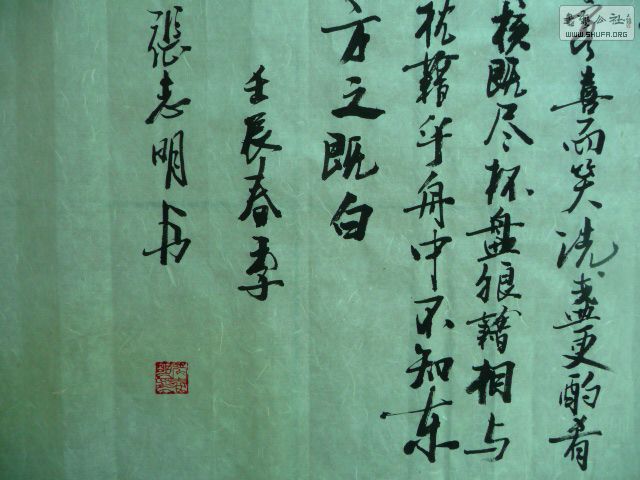 客喜而笑洗盏更酌肴
核既尽杯盘狼藉相与
枕藉乎舟中不知东
方之既白
壬辰春季
張志明书
書法公社
WWW.SHUFA.ORG